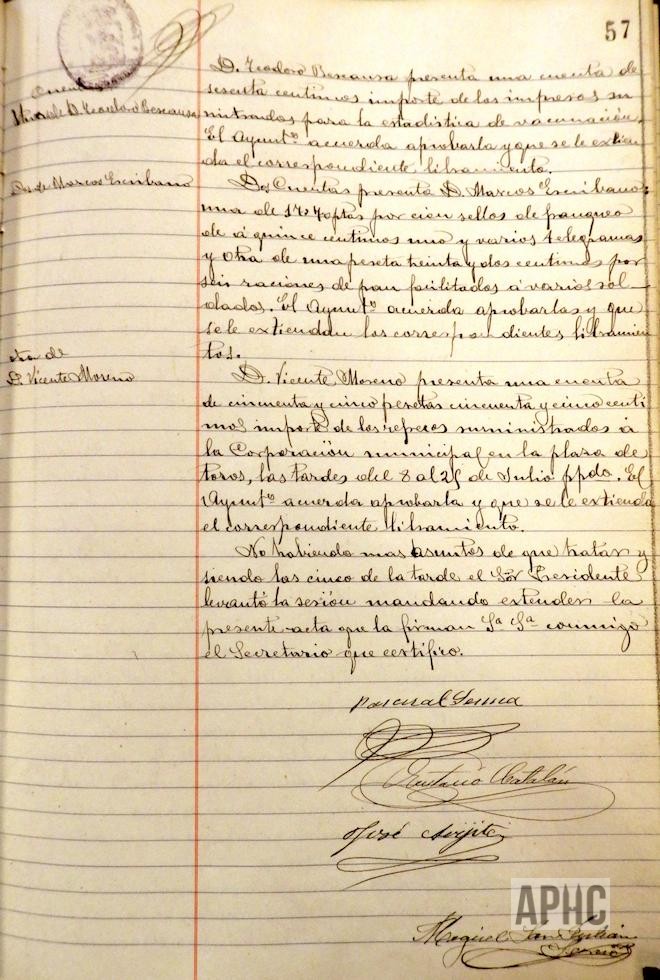 57
Cuenta
Viuda de D. Teodoro Bescansa
D. Teodoro Bescansa presenta una cuenta de
sesenta centimos importe de los impresos su
ministrados para la estadistica de vacunación.
El Ayuntº acuerda aprobarla y que se le extien
da el correspondiente libramiento.
Dos de Marcos Escribano
Dos Cuentas presenta D. Marcos Escribano:
una de ptas por cien sellos de franqueo
de á quince centimos uno y varios telegramas
y otra de una peseta treinta y dos centimos por
seis raciones de pan facilitados á varios sol-
dados. El Ayuntº acuerda aprobarlas y que
se le extiendan los correspondientes libramien
tos.
Otra de
D. Vicente Moreno
D. Vicente Moreno presenta una cuenta
de cincuenta y cinco pesetas cincuenta y cinco centi
mos importe de los refrescos suministrados á
la Corporación municipal en la plaza de
toros, las tardes del 8 al 25 de Julio ppdo. El
Ayuntº acuerda aprobarla y que se le extienda
el correspondiente libramiento.
No habiendo mas asuntos de que tratar y
siendo las cinco de la tarde el Sor Presidente
levantó la sesión mandando extender la
presente acta que la firman Sª Sª conmigo
el Secretario que certifico.
Pascual
Eustasio Catalán
José
Miguel San Julián
APHC